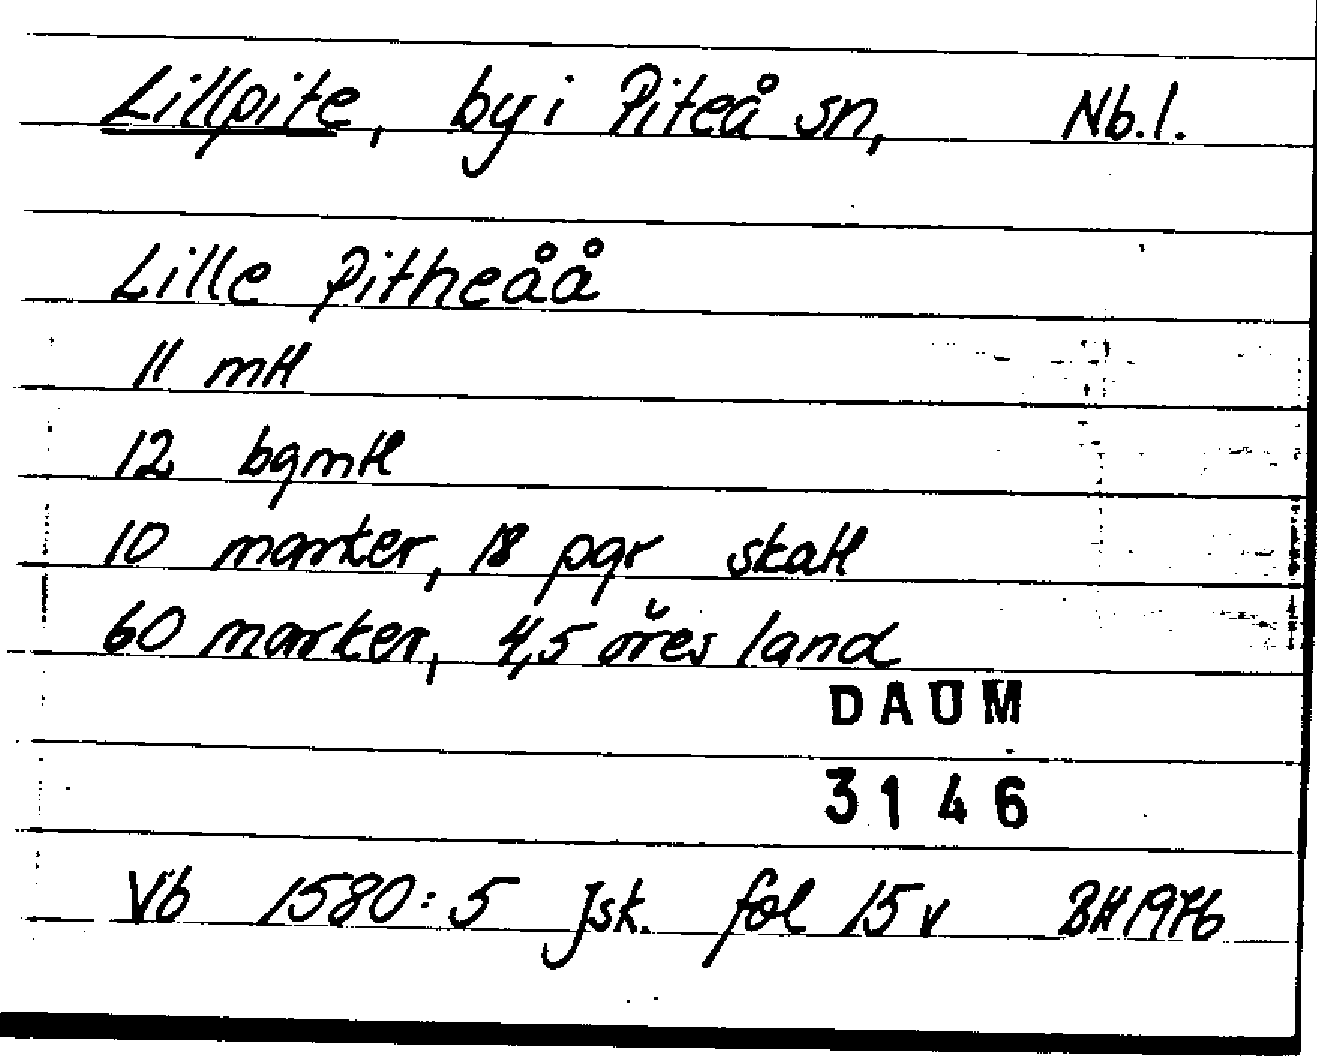 Lillpite, by i Piteå sn, Nb.l.
Lille Pitheåå
11 mtl
12 bgmtl
10 marker, 18 pgr skatt
60 marker, 4,5 öres land
DAUM
3146
Vb 1580:5 Jsk. fol 15 v BH 1976